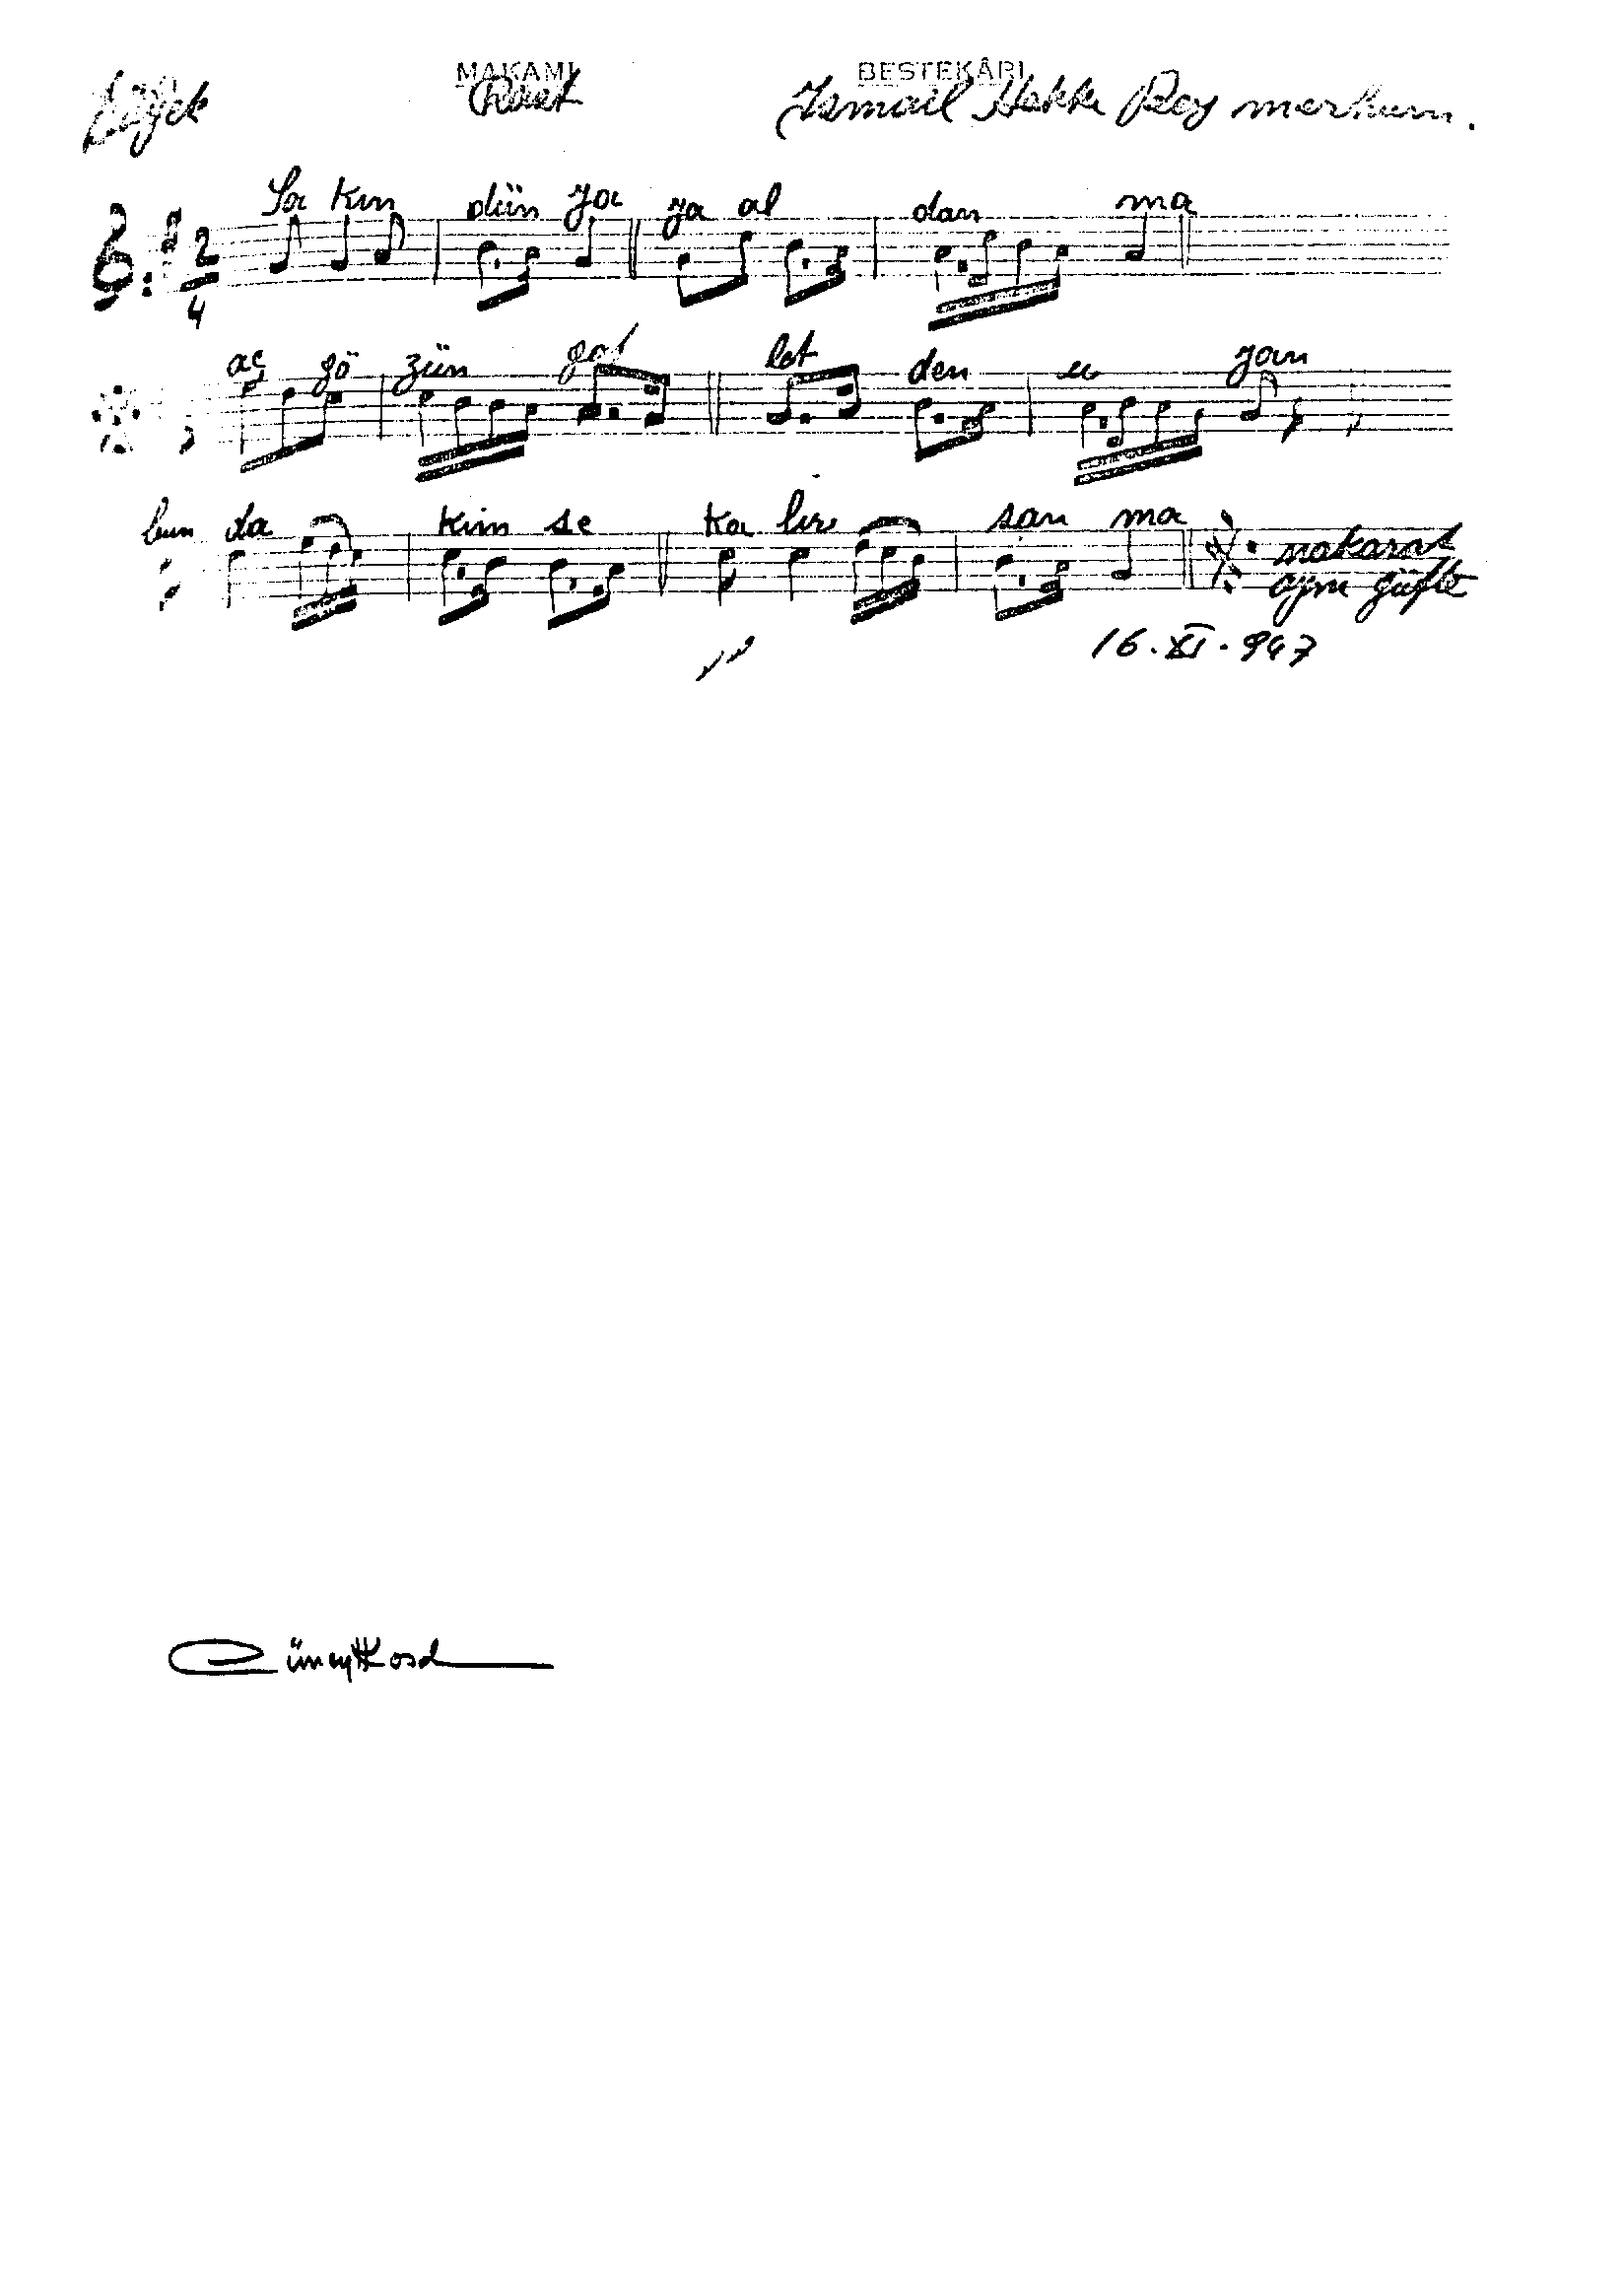 MAKAMI BESTEKÂRI
Düyek Rast İsmail Hakkı Bey merhum.
2
4
Sa kın dün ya ya al dan ma
aç gö zün gaf let den u yan
bun da kim se ka lır san ma
nakarat
aynı güfte
16.XI.947
Cüneyt Kosal